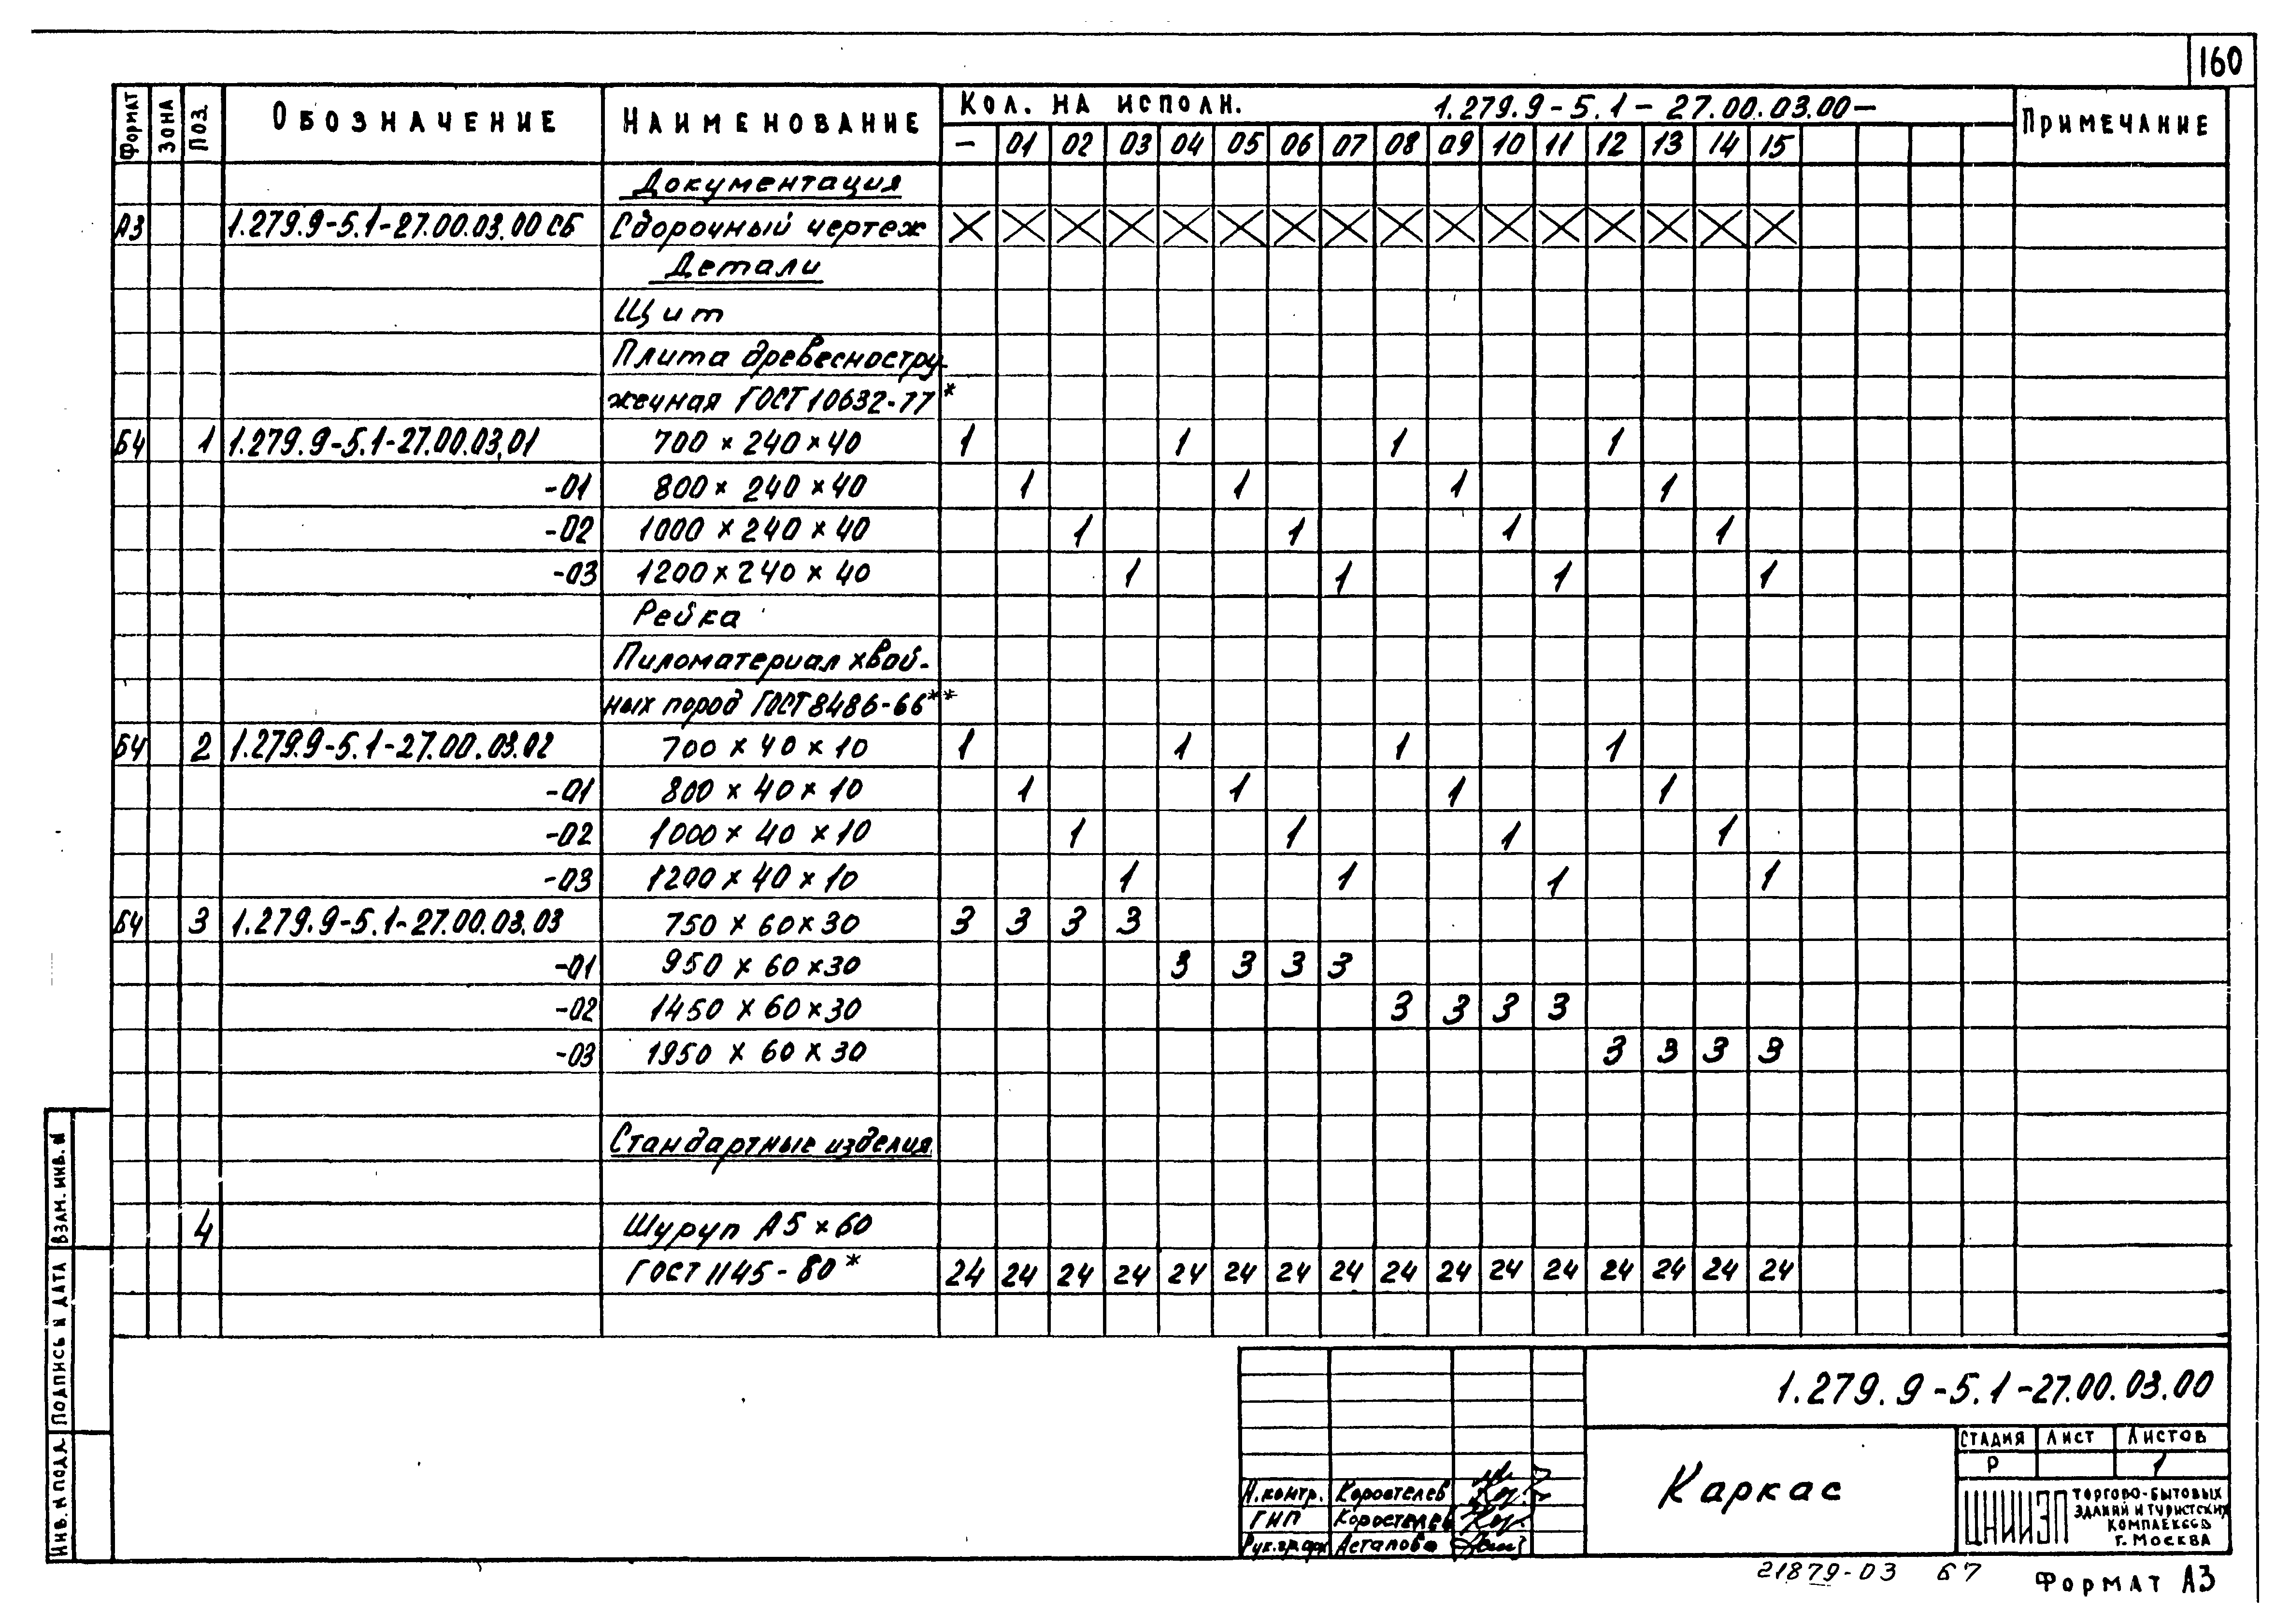 160
ФОРМАТ ЗОНА ПОЗ. ОБОЗНАЧЕНИЕ НАИМЕНОВАНИЕ КОЛ. НА ИСПОЛН. 1.279.9-5.1-27.00.03.00- ПРИМЕЧАНИЕ
- 01 02 03 04 05 06 07 08 09 10 11 12 13 14 15
Документация
А3 1.279.9-5.1-27.00.03.00 СБ Сборочный чертеж X X X X X X X X X X X X X X X X
Детали
Щит
Плита древесностру-
жечная ГОСТ 10632-77*
БЧ 1 1.279.9-5.1-27.00.03.01 700 × 240 × 40 1 1 1 1
-01 800 × 240 × 40 1 1 1 1
-02 1000 × 240 × 40 1 1 1 1
-03 1200 × 240 × 40 1 1 1 1
Рейка
Пиломатериал хвой-
ных пород ГОСТ 8486-66**
БЧ 2 1.279.9-5.1-27.00.03.02 700 × 40 × 10 1 1 1 1
-01 800 × 40 × 10 1 1 1 1
-02 1000 × 40 × 10 1 1 1 1
-03 1200 × 40 × 10 1 1 1 1
БЧ 3 1.279.9-5.1-27.00.03.03 750 × 60 × 30 3 3 3 3
-01 950 × 60 × 30 3 3 3 3
-02 1450 × 60 × 30 3 3 3 3
-03 1950 × 60 × 30 3 3 3 3
Стандартные изделия
4 Шуруп А5 × 60
ГОСТ 1145-80* 24 24 24 24 24 24 24 24 24 24 24 24 24 24 24 24
ВЗАМ. ИНВ. №
ПОДПИСЬ И ДАТА
ИНВ. № ПОДЛ
1.279.9-5.1-27.00.03.00
Каркас
СТАДИЯ ЛИСТ ЛИСТОВ
Р 1
Н.контр. Коростелев
ГИП Коростелев
Рук.гр.арх Асталова
ЦНИИЭП ТОРГОВО-БЫТОВЫХ
ЗДАНИЙ И ТУРИСТСКИХ
КОМПЛЕКСОВ
Г. МОСКВА
21879-03 67
ФОРМАТ А3